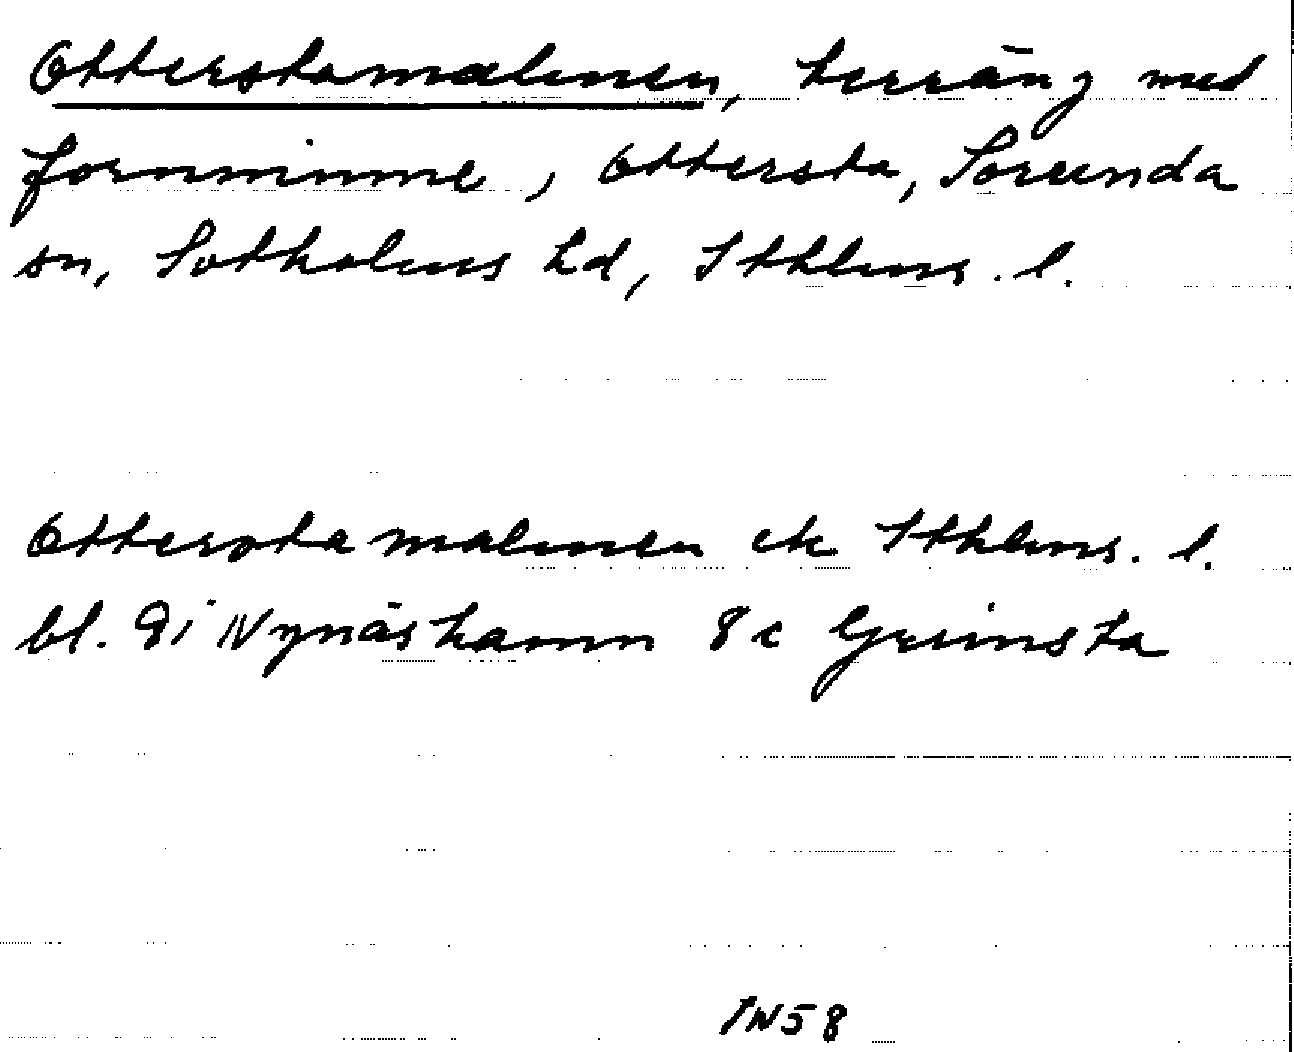 Otterstamalmen, terräng med
fornminne, Ottersta, Sorunda
sn, Sotholms hd, Sthlms. l.
Otterstamalmen ek Sthlms. l.
bl. 9i Nynäshamn 8c Grimsta
TN58